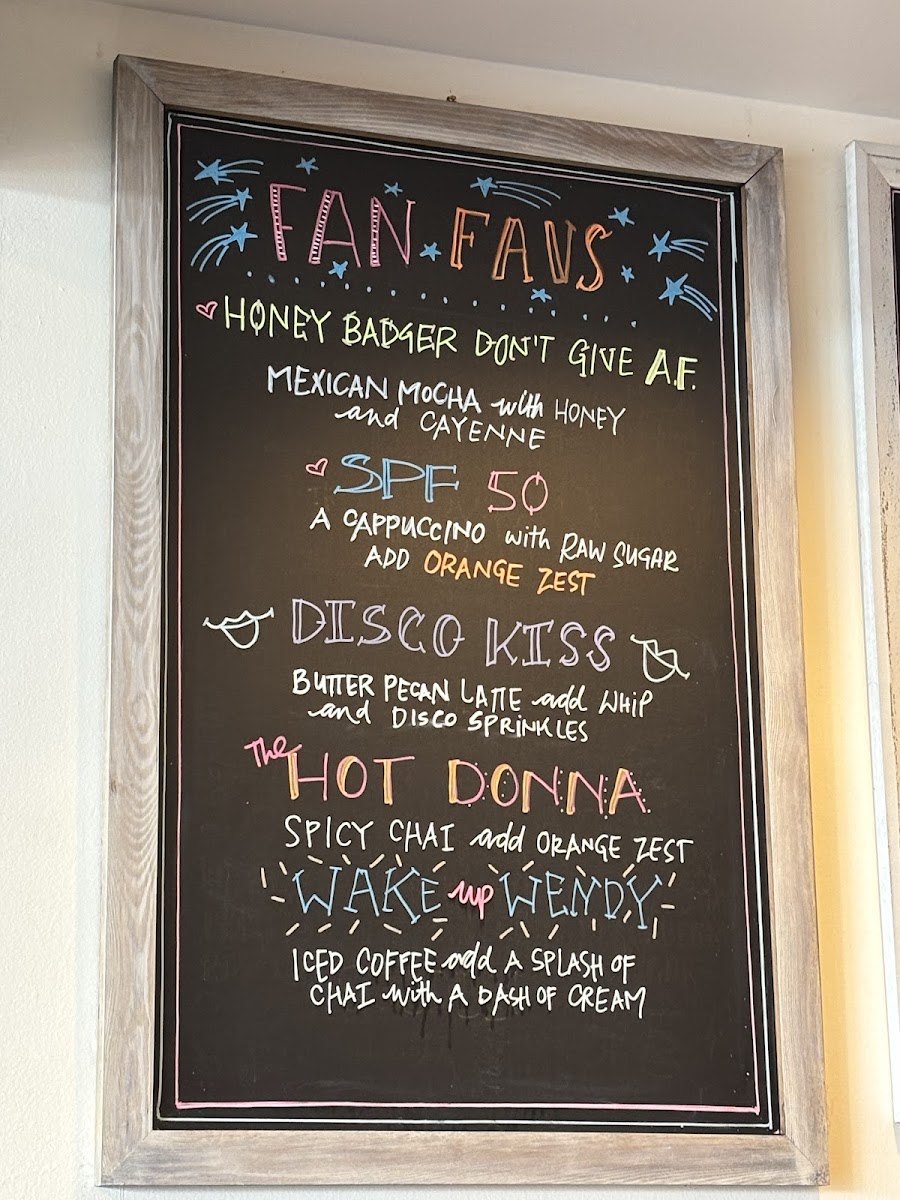 FAN FAVS
HONEY BADGER DON'T GIVE A.F.
MEXICAN MOCHA with HONEY
and CAYENNE
SPF 50
A CAPPUCCINO with RAW SUGAR
ADD ORANGE ZEST
DISCO KISS
BUTTER PECAN LATTE add WHIP
and DISCO SPRINKLES
The HOT DONNA
SPICY CHAI add ORANGE ZEST
WAKE up WENDY
ICED COFFEE add A SPLASH OF
CHAI with A DASH OF CREAM